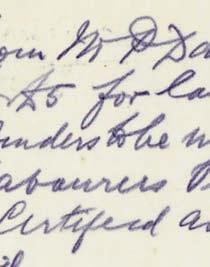 om Mr P Da
£5 for la
unders to be
abourers
Certified a